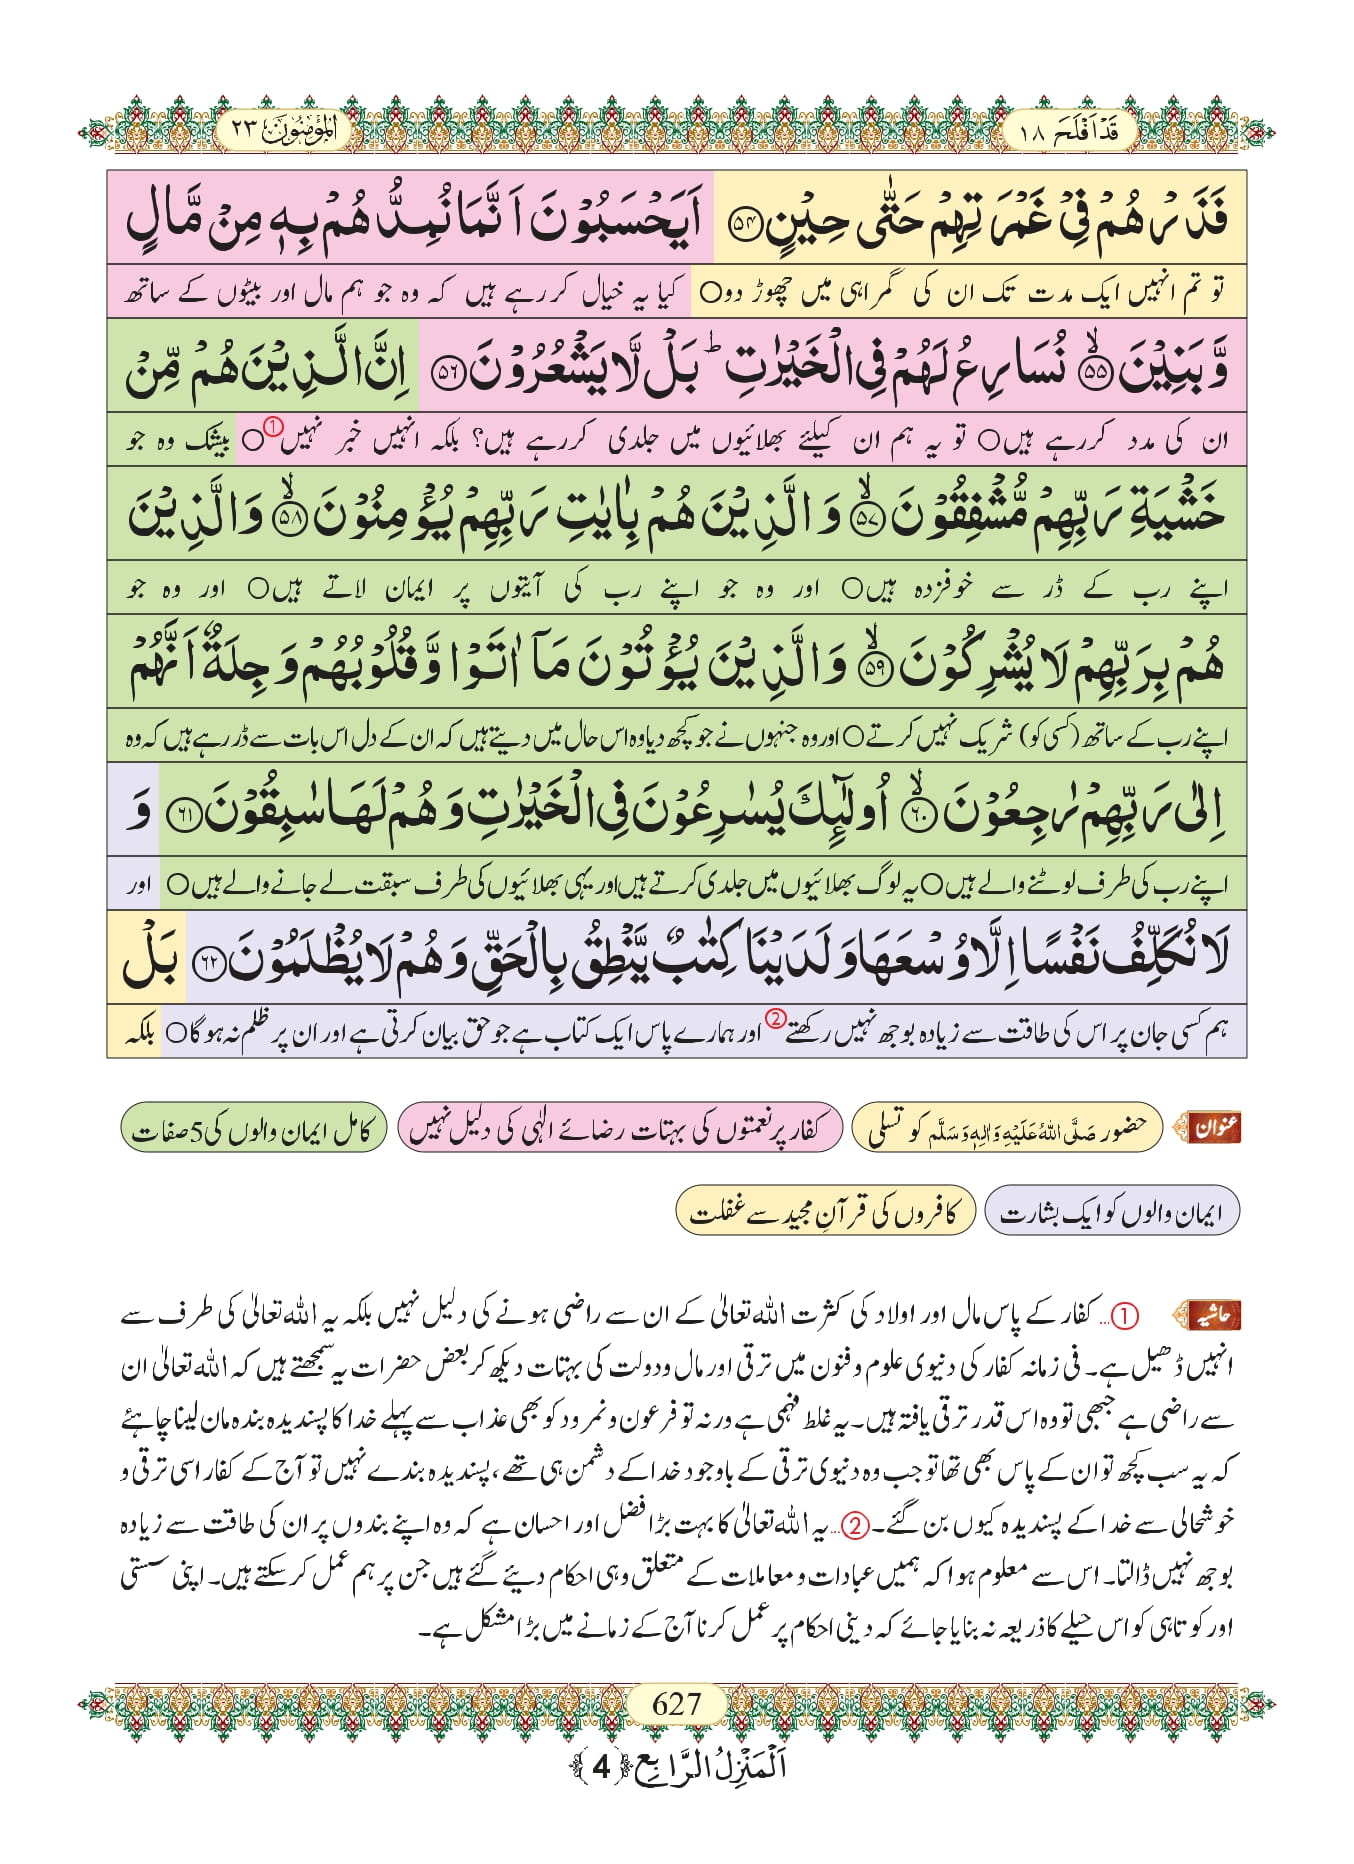 قَدْ اَفْلَحَ ۱۸
الْمُؤْمِنُوْنَ ۲۳
فَذَرْهُمْ فِیْ غَمْرَتِهِمْ حَتّٰى حِیْنٍ(۵۴) اَیَحْسَبُوْنَ اَنَّمَا نُمِدُّهُمْ بِهٖ مِنْ مَّالٍ
تو تم انہیں ایک مدت تک ان کی گمراہی میں چھوڑ دو○ کیا یہ خیال کررہے ہیں کہ وہ جو ہم مال اور بیٹوں کے ساتھ
وَّ بَنِیْنَۙ(۵۵) نُسَارِعُ لَهُمْ فِی الْخَیْرٰتِؕ-بَلْ لَّا یَشْعُرُوْنَ(۵۶) اِنَّ الَّذِیْنَ هُمْ مِّنْ
ان کی مدد کررہے ہیں○ تو یہ ہم ان کیلئے بھلائیوں میں جلدی کررہے ہیں؟ بلکہ انہیں خبر نہیں①○ بیشک وہ جو
خَشْیَةِ رَبِّهِمْ مُّشْفِقُوْنَۙ(۵۷) وَ الَّذِیْنَ هُمْ بِاٰیٰتِ رَبِّهِمْ یُؤْمِنُوْنَۙ(۵۸) وَ الَّذِیْنَ
اپنے رب کے ڈر سے خوفزدہ ہیں○ اور وہ جو اپنے رب کی آیتوں پر ایمان لاتے ہیں○ اور وہ جو
هُمْ بِرَبِّهِمْ لَا یُشْرِكُوْنَۙ(۵۹) وَ الَّذِیْنَ یُؤْتُوْنَ مَاۤ اٰتَوْا وَّ قُلُوْبُهُمْ وَجِلَةٌ اَنَّهُمْ
اپنے رب کے ساتھ (کسی کو) شریک نہیں کرتے○ اور وہ جنہوں نے جو کچھ دیا وہ اس حال میں دیتے ہیں کہ ان کے دل اس بات سے ڈر رہے ہیں کہ وہ
اِلٰى رَبِّهِمْ رٰجِعُوْنَۙ(۶۰) اُولٰٓىٕكَ یُسٰرِعُوْنَ فِی الْخَیْرٰتِ وَ هُمْ لَهَا سٰبِقُوْنَ(۶۱) وَ
اپنے رب کی طرف لوٹنے والے ہیں○ یہ لوگ بھلائیوں میں جلدی کرتے ہیں اور یہی بھلائیوں کی طرف سبقت لے جانے والے ہیں○ اور
لَا نُكَلِّفُ نَفْسًا اِلَّا وُسْعَهَا وَ لَدَیْنَا كِتٰبٌ یَّنْطِقُ بِالْحَقِّ وَ هُمْ لَا یُظْلَمُوْنَ(۶۲) بَلْ
ہم کسی جان پر اس کی طاقت سے زیادہ بوجھ نہیں رکھتے② اور ہمارے پاس ایک کتاب ہے جو حق بیان کرتی ہے اور ان پر ظلم نہ ہوگا○ بلکہ
عنوان حضور صَلَّی اللہُ عَلَیْہِ وَاٰلِہٖ وَسَلَّم کو تسلی کفار پر نعمتوں کی بہتات رضائے الٰہی کی دلیل نہیں کامل ایمان والوں کی 5 صفات
ایمان والوں کو ایک بشارت کافروں کی قرآنِ مجید سے غفلت
حاشیہ ①... کفار کے پاس مال اور اولاد کی کثرت اللہ تعالیٰ کے ان سے راضی ہونے کی دلیل نہیں بلکہ یہ اللہ تعالیٰ کی طرف سے
انہیں ڈھیل ہے۔ فی زمانہ کفار کی دنیوی علوم و فنون میں ترقی اور مال و دولت کی بہتات دیکھ کر بعض حضرات یہ سمجھتے ہیں کہ اللہ تعالیٰ ان
سے راضی ہے جبھی تو وہ اس قدر ترقی یافتہ ہیں۔ یہ غلط فہمی ہے ورنہ تو فرعون و نمرود کو بھی عذاب سے پہلے خدا کا پسندیدہ بندہ مان لینا چاہئے
کہ یہ سب کچھ تو ان کے پاس بھی تھا تو جب وہ دنیوی ترقی کے باوجود خدا کے دشمن ہی تھے، پسندیدہ بندے نہیں تو آج کے کفار اسی ترقی و
خوشحالی سے خدا کے پسندیدہ کیوں بن گئے۔ ②... یہ اللہ تعالیٰ کا بہت بڑا فضل اور احسان ہے کہ وہ اپنے بندوں پر ان کی طاقت سے زیادہ
بوجھ نہیں ڈالتا۔ اس سے معلوم ہوا کہ ہمیں عبادات و معاملات کے متعلق وہی احکام دیئے گئے ہیں جن پر ہم عمل کرسکتے ہیں۔ اپنی سستی
اور کوتاہی کو اس حیلے کا ذریعہ نہ بنایا جائے کہ دینی احکام پر عمل کرنا آج کے زمانے میں بڑا مشکل ہے۔
627
اَلْمَنْزِلُ الرَّابِع ﴿4﴾